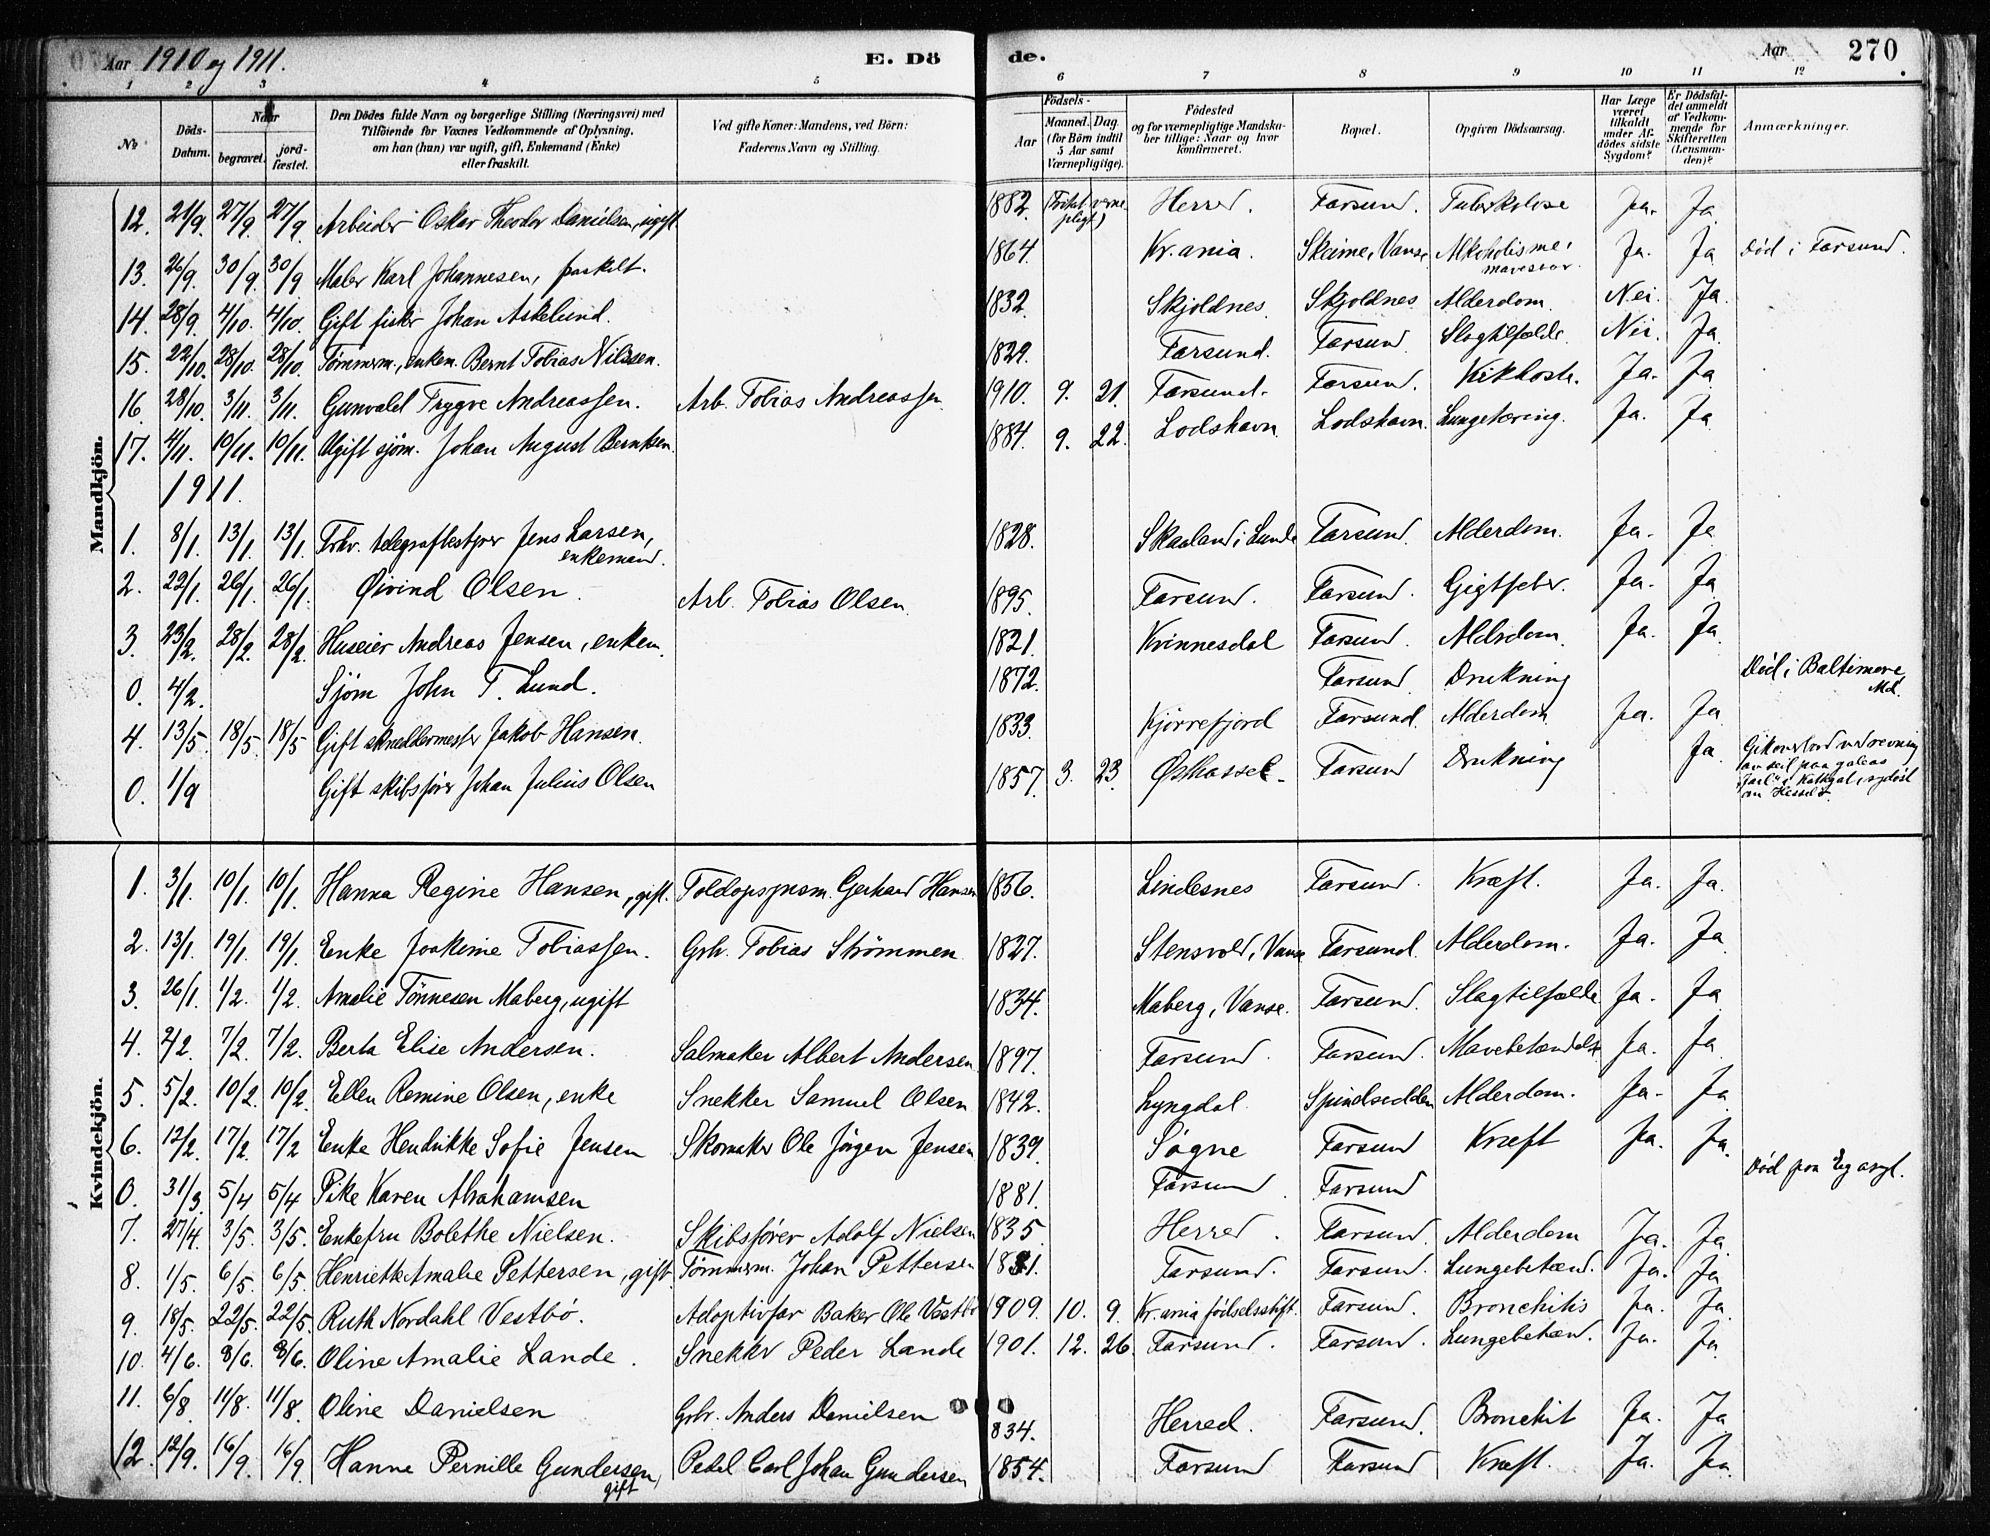 Aar 1910 og 1911. E. Dö de. Aar 270
1 2 3 4 5 6 7 8 9 10 11 12
No Döds-Datum. Naar begravet. jordfæstet. Den Dödes fulde Navn og borgerlige Stilling (Næringsvei) med Tilföiende for Voxnes Vedkommende af Oplysning, om han (hun) var ugift, gift, Enkemand (Enke) eller fraskilt. Ved gifte Koner: Mandens, ved Börn: Faderens Navn og Stilling. Födsels- Aar Maaned. Dag. (for Börn indtil 5 Aar samt Værnepligtige). Födested og for værnepligtige Mandskaber tillige: Naar og hvor konfirmeret. Bopæl. Opgiven Dödsaarsag. Har Læge været tilkaldt under Afdödes sidste Sygdom? Er Dödsfaldet anmeldt af Vedkommende for Skifteretten (Lensmanden)? Anmærkninger.
Mandkjön.
12. 21/9. 27/9 27/9 Arbeider Oskar Theodor Danielsen, ugift 1882. (Frit. vernepligt) Herred. Farsund. Tuberkulose Ja. Ja
13. 26/9. 30/9. 30/9 Maler Karl Johannesen, fraskilt. 1864. Kr.ania. Skeime, Vanse Alkoholisme, mavesaar. Ja. Ja Død i Farsund.
14. 28/9. 4/10. 4/10. Gift fisker Johan Askelund. 1832. Skjoldnes. Skjoldnes Alderdom. Nei. Ja.
15. 22/10. 28/10. 28/10. Tømmerm., enkem. Bernt Tobias Nilssen. 1829. Farsund. Farsund. Slagtilfælde. Nei. Ja
16. 28/10. 3/11. 3/11. Gunvald Trygve Andreassen. Arb. Tobias Andreassen 1910. 9. 21. Farsund. Farsund. Kikhoste. Ja. Ja
17. 4/11. 10/11. 10/11. Ugift sjøm. Johan August Berntsen. 1884. 9. 22. Lodshavn. Lodshavn. Lungetæring. Ja. Ja
1911.
1. 8/1. 13/1. 13/1. Forhv. telegrafbestyrer Jens Larsen, enkemand. 1828. Skaaland i Lunde Farsund. Alderdom. Ja. Ja
2. 22/1. 26/1. 26/1. Øivind Olsen. Arb. Tobias Olsen. 1895. Farsund. Farsund. Gigtfeber. Ja. Ja
3. 23/2. 28/2. 28/2. Huseier Andreas Jensen, enkem. 1821. Kvinnesdal Farsund. Alderdom. Ja. Ja
0. 4/2. Sjøm John T. Lund. 1872. Farsund Drukning Død i Baltimore, Md.
4. 13/5. 18/5. 18/5 Gift skreddermester Jakob Hansen. 1833. Kjørrefjord Farsund. Alderdom Ja. Ja
0. 1/9 Gift skibsfører Johan Julius Olsen 1857. 3. 23. Østhassel. Farsund Drukning Ja. Gik overbord ved revning av seil paa galeas "Jarl" i Kattegat, sydøst om Hesselø.
Kvindekjön.
1. 3/1. 10/1. 10/1. Hanna Regine Hansen, gift. Toldopsynsm. Gerhard Hansen 1856. Lindesnes Farsund. Kræft. Ja. Ja.
2. 13/1. 19/1. 19/1. Enke Joakime Tobiassen. Grb. Tobias Strømmen 1827. Stensvold, Vanse Farsund. Alderdom. Ja. Ja
3. 26/1. 1/2. 1/2. Amalie Tønnesen Maberg, ugift 1834. Maberg, Vanse. Farsund. Slagtilfælde Ja. Ja
4. 2/2. 7/2. 7/2. Berta Elise Andersen. Salmaker Albert Andersen 1897. Farsund. Farsund. Mavebetændelse Ja. Ja
5. 5/2. 10/2. 10/2. Ellen Remine Olsen, enke Snekker Samuel Olsen 1842. Lyngdal. Spindsodden Alderdom. Ja. Ja
6. 12/2. 17/2. 17/2 Enke Hendrikke Sofie Jensen Skomaker Ole Jørgen Jensen 1839. Søgne Farsund Kræft Ja. Ja.
0. 31/3. 5/4 5/4 Pike Karen Abrahamsen 1881. Farsund Farsund Død paa Eg asyl.
7. 27/4. 3/5. 3/5. Enkefru Bolethe Nielsen. Skibsfører Adolf Nielsen 1835. Herred. Farsund. Alderdom Ja. Ja.
8. 1/5. 6/5. 6/5. Henriette Amalie Pettersen, gift Tømmerm. Johan Pettersen Farsund. Farsund. Lungebetænd. Ja. Ja
9. 18/5. 22/5. 22/5. Ruth Nordahl Vestbø. Adoptivfar Baker Ole Vestbø 1909. 10. 9. Kr.ania fødselsstift. Farsund. Bronchitis Ja. Ja.
10. 4/6. 8/6. 8/6. Oline Amalie Lande. Snekker Peder Lande 1901. 12. 26. Farsund. Farsund. Lungebetænd. Ja. Ja.
11. 6/8. 11/8. 11/8. Oline Danielsen Grbr. Anders Danielsen 834. Herred. Farsund. Bronchit Ja. Ja
12. 12/9. 16/9. 16/9 Hanne Pernille Gundersen, gift Pedel Carl Johan Gundersen 1854. Farsund Farsund Kræft. Ja. Ja.